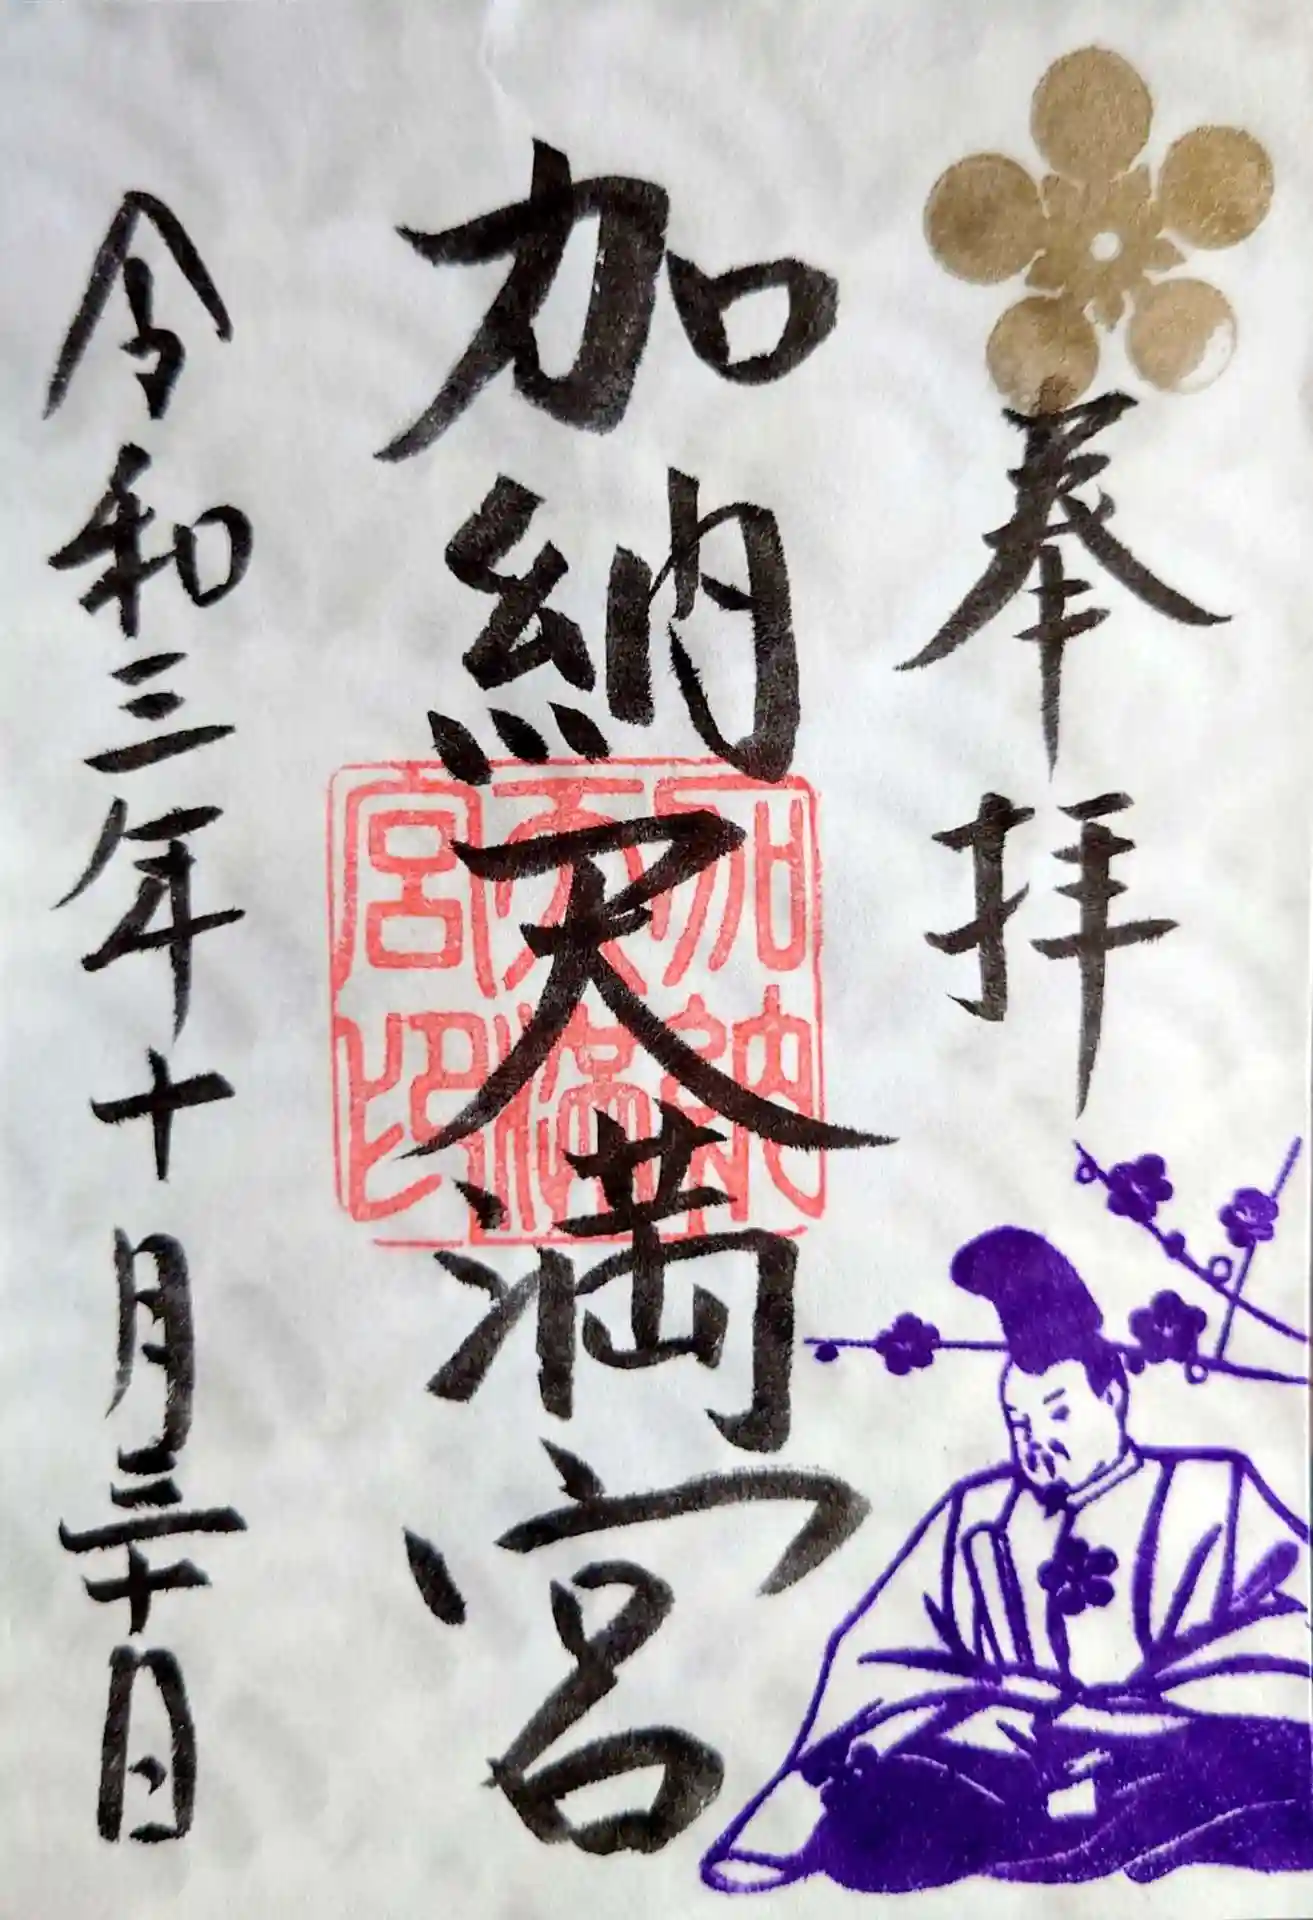 奉拝
加納天満宮
加納天満宮印
令和三年十月三十日